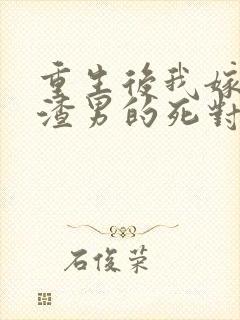 重生後我嫁
渣男的死對
石俊榮